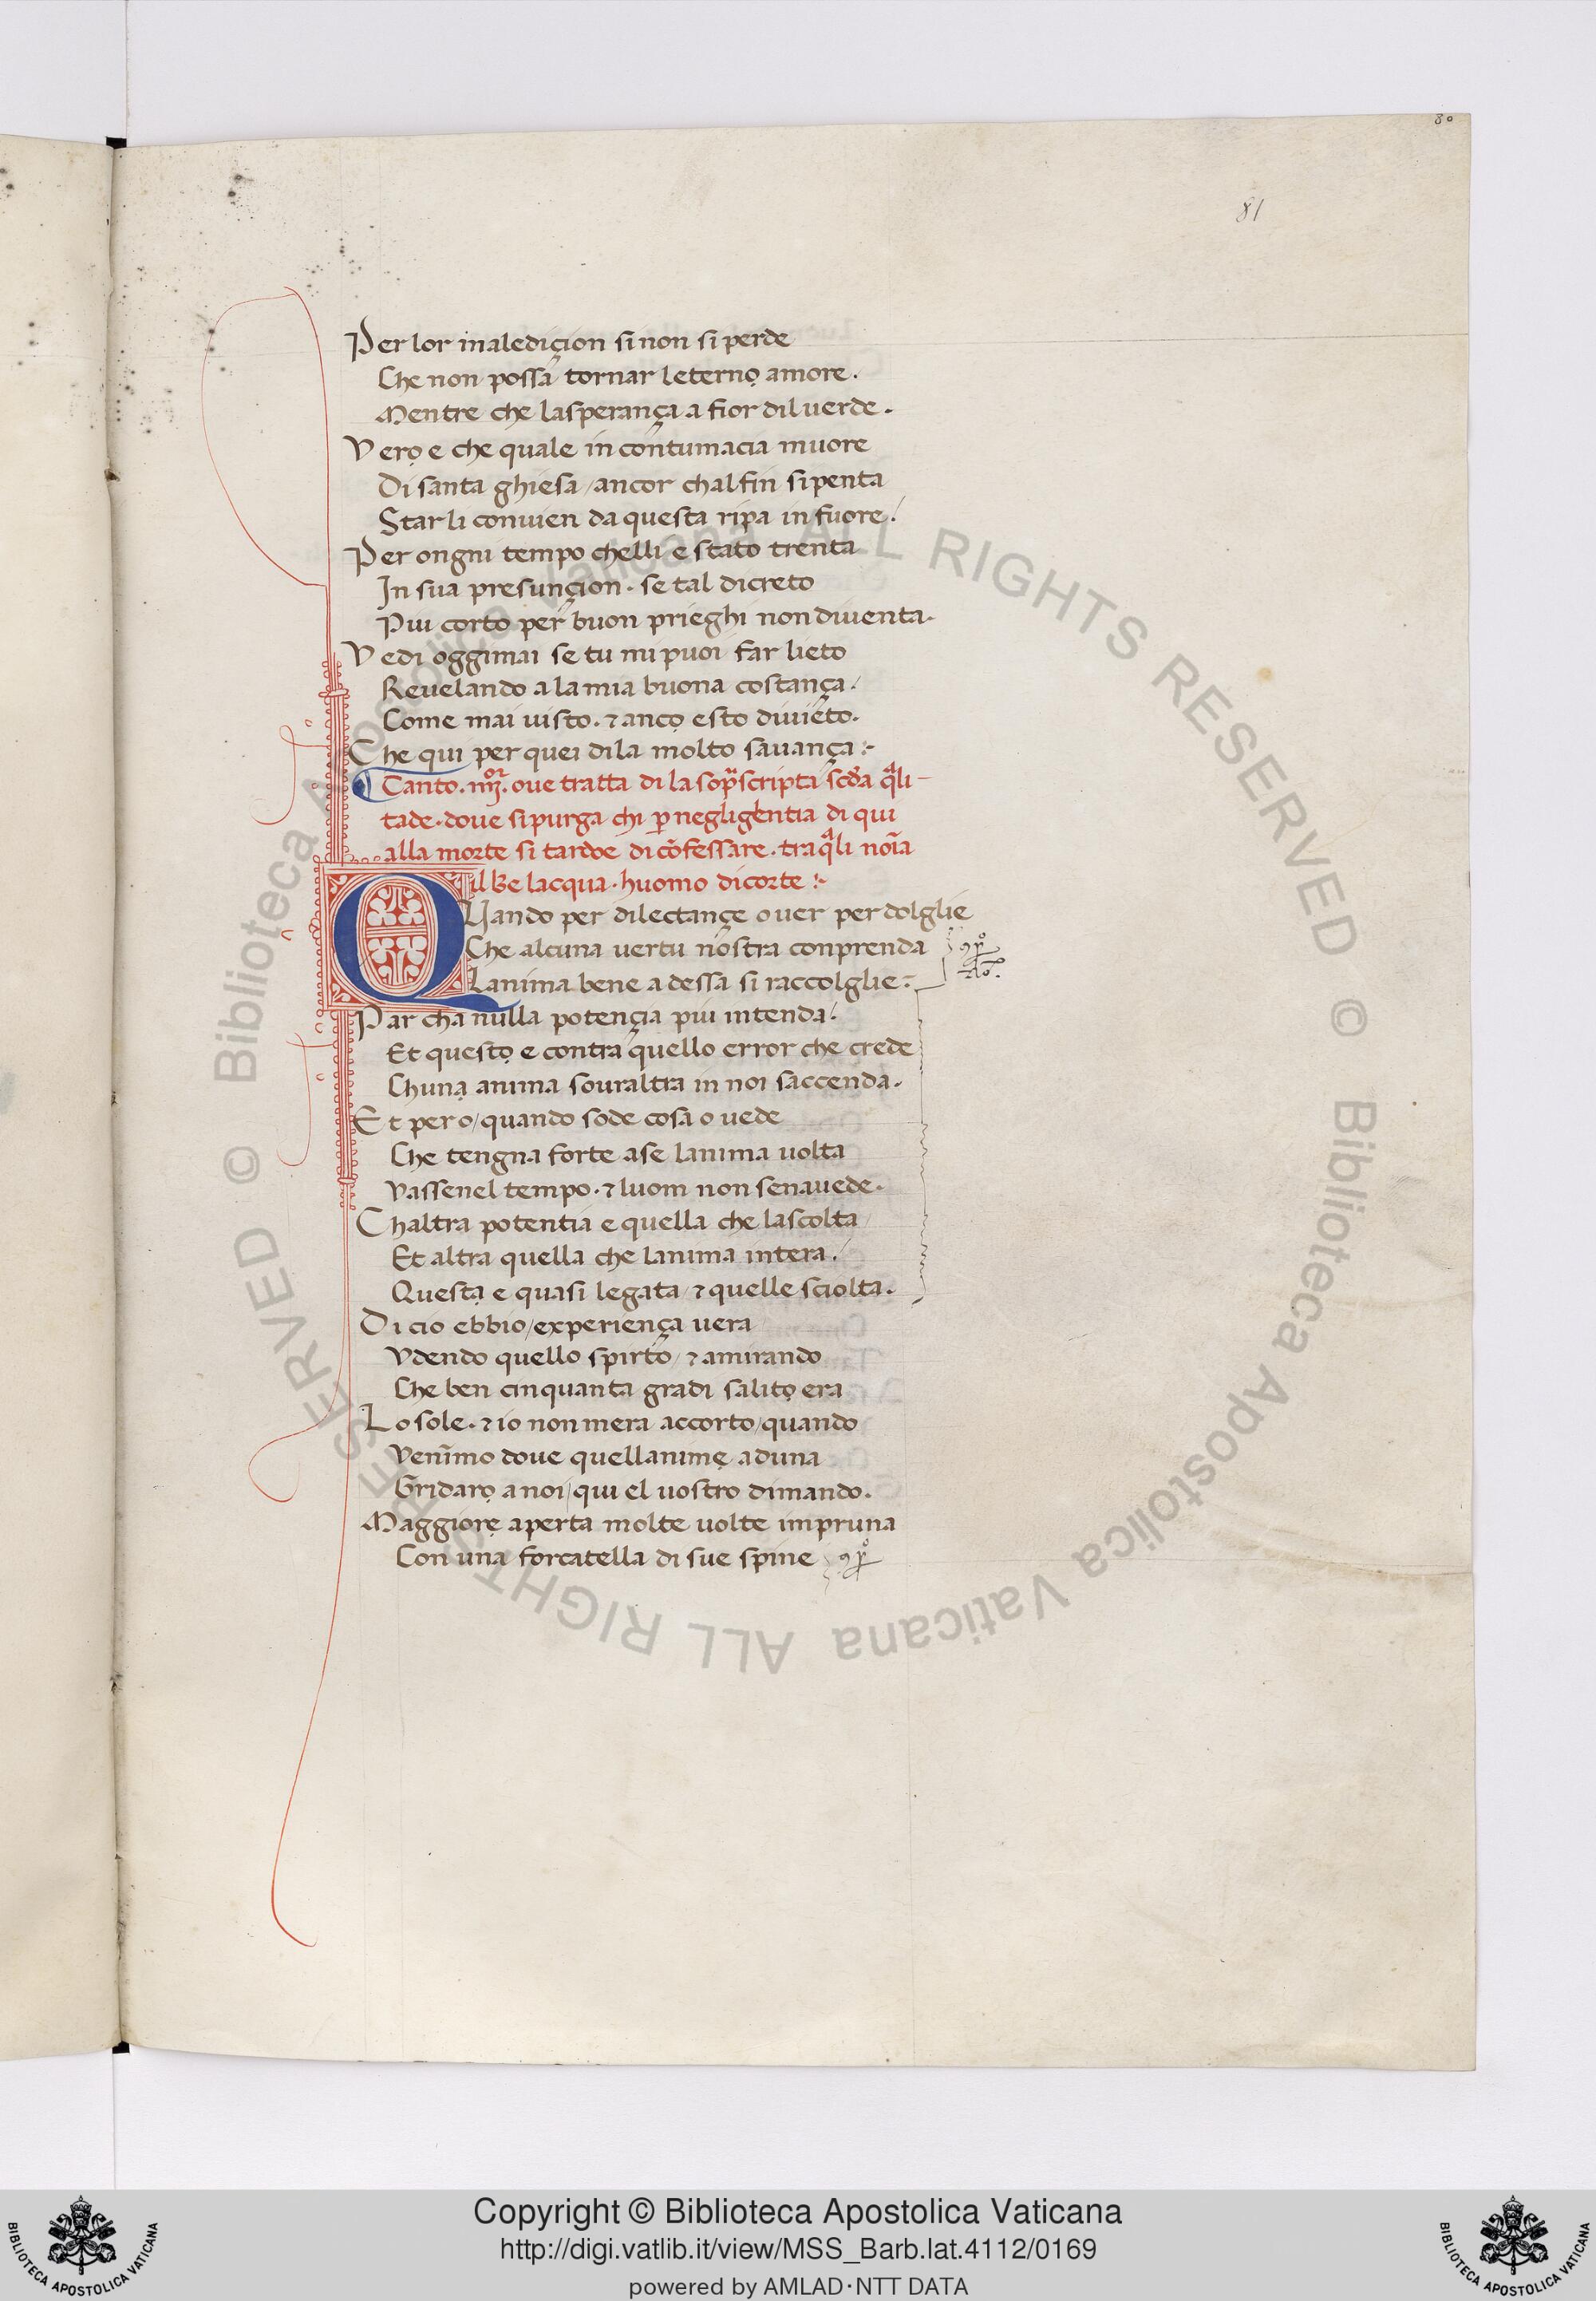 80
81
Per lor malediçion si non si perde
Che non possa tornar leternọ amore.
Mentre che lasperança a fior dil uerde.
Verọ e che quale in contumacia muore
Di santa ghiesa / ancor chalfin sipenta
Starli conuien da questa ripa in fuore.
Per ongni tempo chelli e stato trenta
In sua presunçion. se tal dicreto
Piu corto per buon prieghi non diuenta.
Vedi oggimai se tu mi puoi far lieto
Reuelando a la mia buona costança.
Come mai uisto. ⁊ ancọ esto diuieto.
Che qui per quei dila molto sauança :-
Canto. ove tratta di la sop̃scripta scđa qͣli
tade. dove sipurga chi ꝑ negligentia di qui
alla morte si tardoe di cõfessare. tra qͣli noĩa
il Belacqua. huomo dicorte :-
QUando per dilectançe ouer per dolglie
Che alcuna uertu nostra conprenda
Lanima bene a dessa si raccolglie :-
Par cha nulla potençia piu intenda.
Et questọ e contra quello error che crede
Chunạ anima souraltra in noi saccenda.
Et pero / quando sode cosa o uede
Che tengna forte ase lanima uolta
Vassenel tempo. ⁊ luom non senauede.
Chaltra potentia e quella che lascolta
Et altra quella che lanima intera.
Questạ e quasi legata / ⁊ quelle sciolta.
Di cio ebbio / experiença uera
Vdendo quello spirto / ⁊ amirando
Che ben cinquanta gradi salitọ era
Lo sole. ⁊ io non mera accorto / quando
Venĩmo doue quellanimẹ aduna
Gridarọ anoi / qui el uostro dimando.
Maggiorẹ aperta molte uolte impruna
Con una forcatella di sue spine
© Biblioteca Apostolica Vaticana ALL RIGHTS RESERVED © Biblioteca Apostolica Vaticana ALL RIGHTS RESERVED
BIBLIOTECA APOSTOLICA VATICANA
Copyright © Biblioteca Apostolica Vaticana
http://digi.vatlib.it/view/MSS_Barb.lat.4112/0169
powered by AMLAD·NTT DATA
BIBLIOTECA APOSTOLICA VATICANA